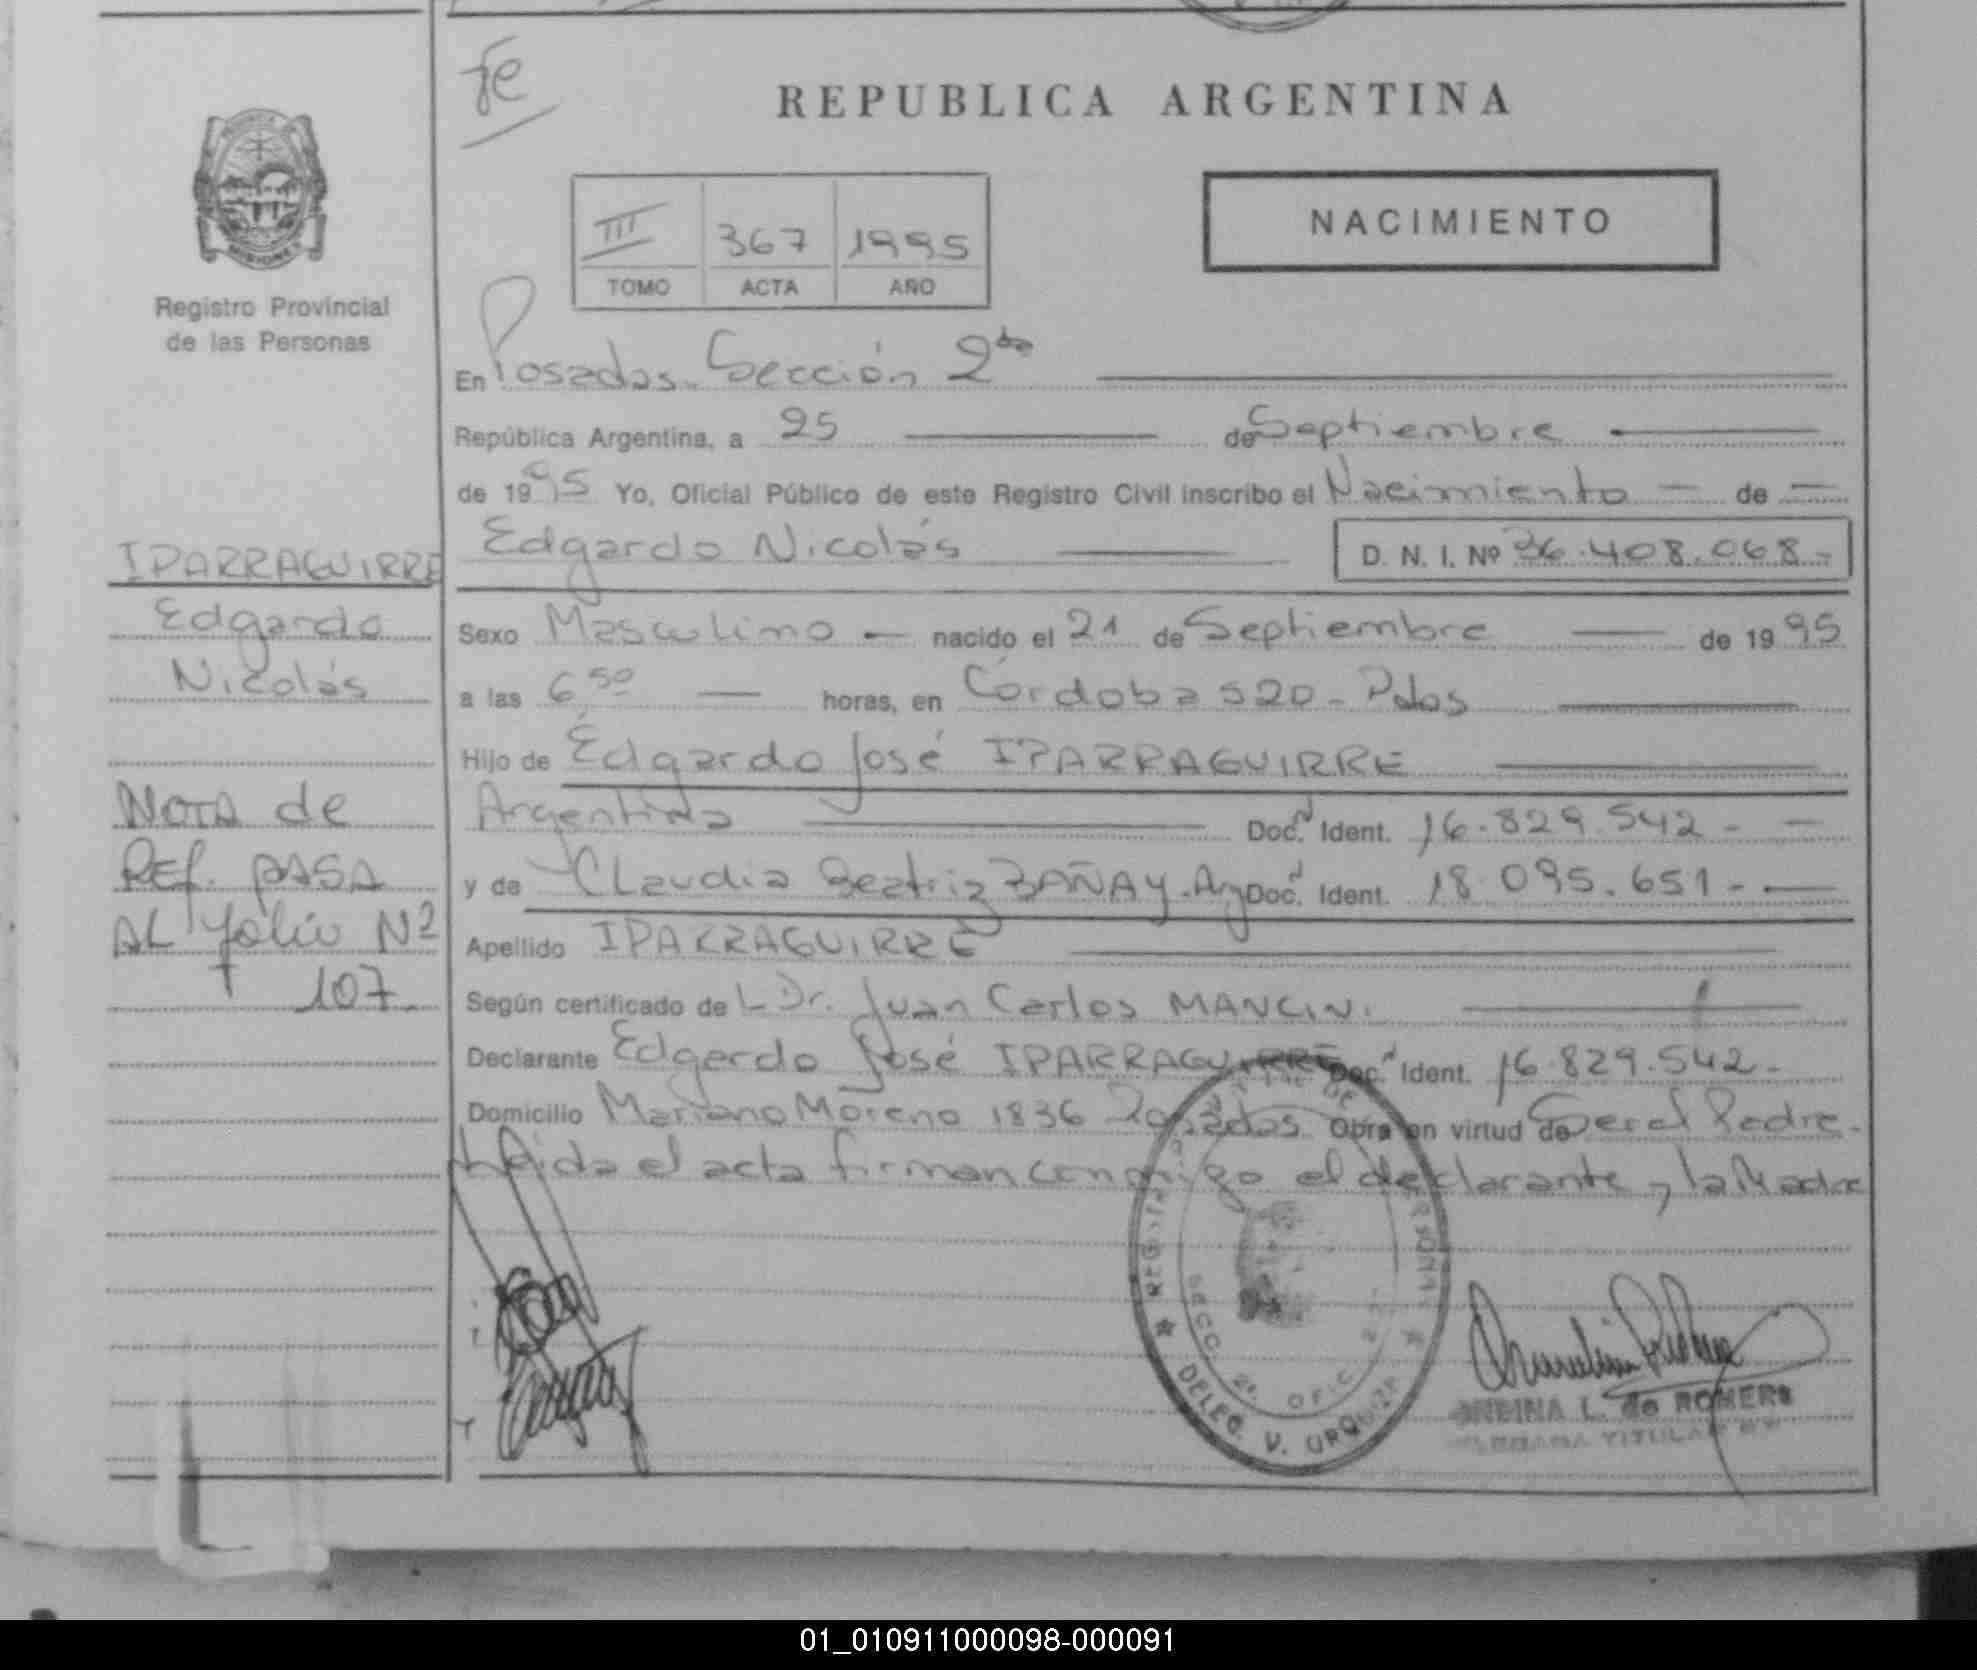 fe
REPUBLICA ARGENTINA
NACIMIENTO
III 367 1995
TOMO ACTA AÑO
MISIONES
Registro Provincial
de las Personas
En Posadas. Sección 2da
República Argentina, a 25 de Septiembre
de 1995 Yo, Oficial Público de este Registro Civil inscribo el Nacimiento de
Edgardo Nicolás D. N. I. Nº 36.408.068.-
IPARRAGUIRRE
Edgardo
Nicolás
Sexo Masculino nacido el 21 de Septiembre de 1995
a las 6 50 horas, en Córdoba 520 - Pdas
Hijo de Edgardo José IPARRAGUIRRE
Argentina Doc. Ident. 16.829.542 -
y de Claudia Beatriz BAÑAY. Arg Doc. Ident. 18.095.651 -
Apellido IPARRAGUIRRE
NOTA de
REF. PASA
AL folio Nº
107.
Según certificado de L Dr. Juan Carlos MANCINI.
Declarante Edgardo José IPARRAGUIRRE Doc. Ident. 16.829.542 -
Domicilio Mariano Moreno 1836 Posadas Obra en virtud de Ser el Padre.
Leida el acta firman conmigo el declarante y la Madre
DELEG. V. URQUIZA
SECC. 2ª. OFIC.
L. de ROMERO
TITULAR
01_010911000098-000091